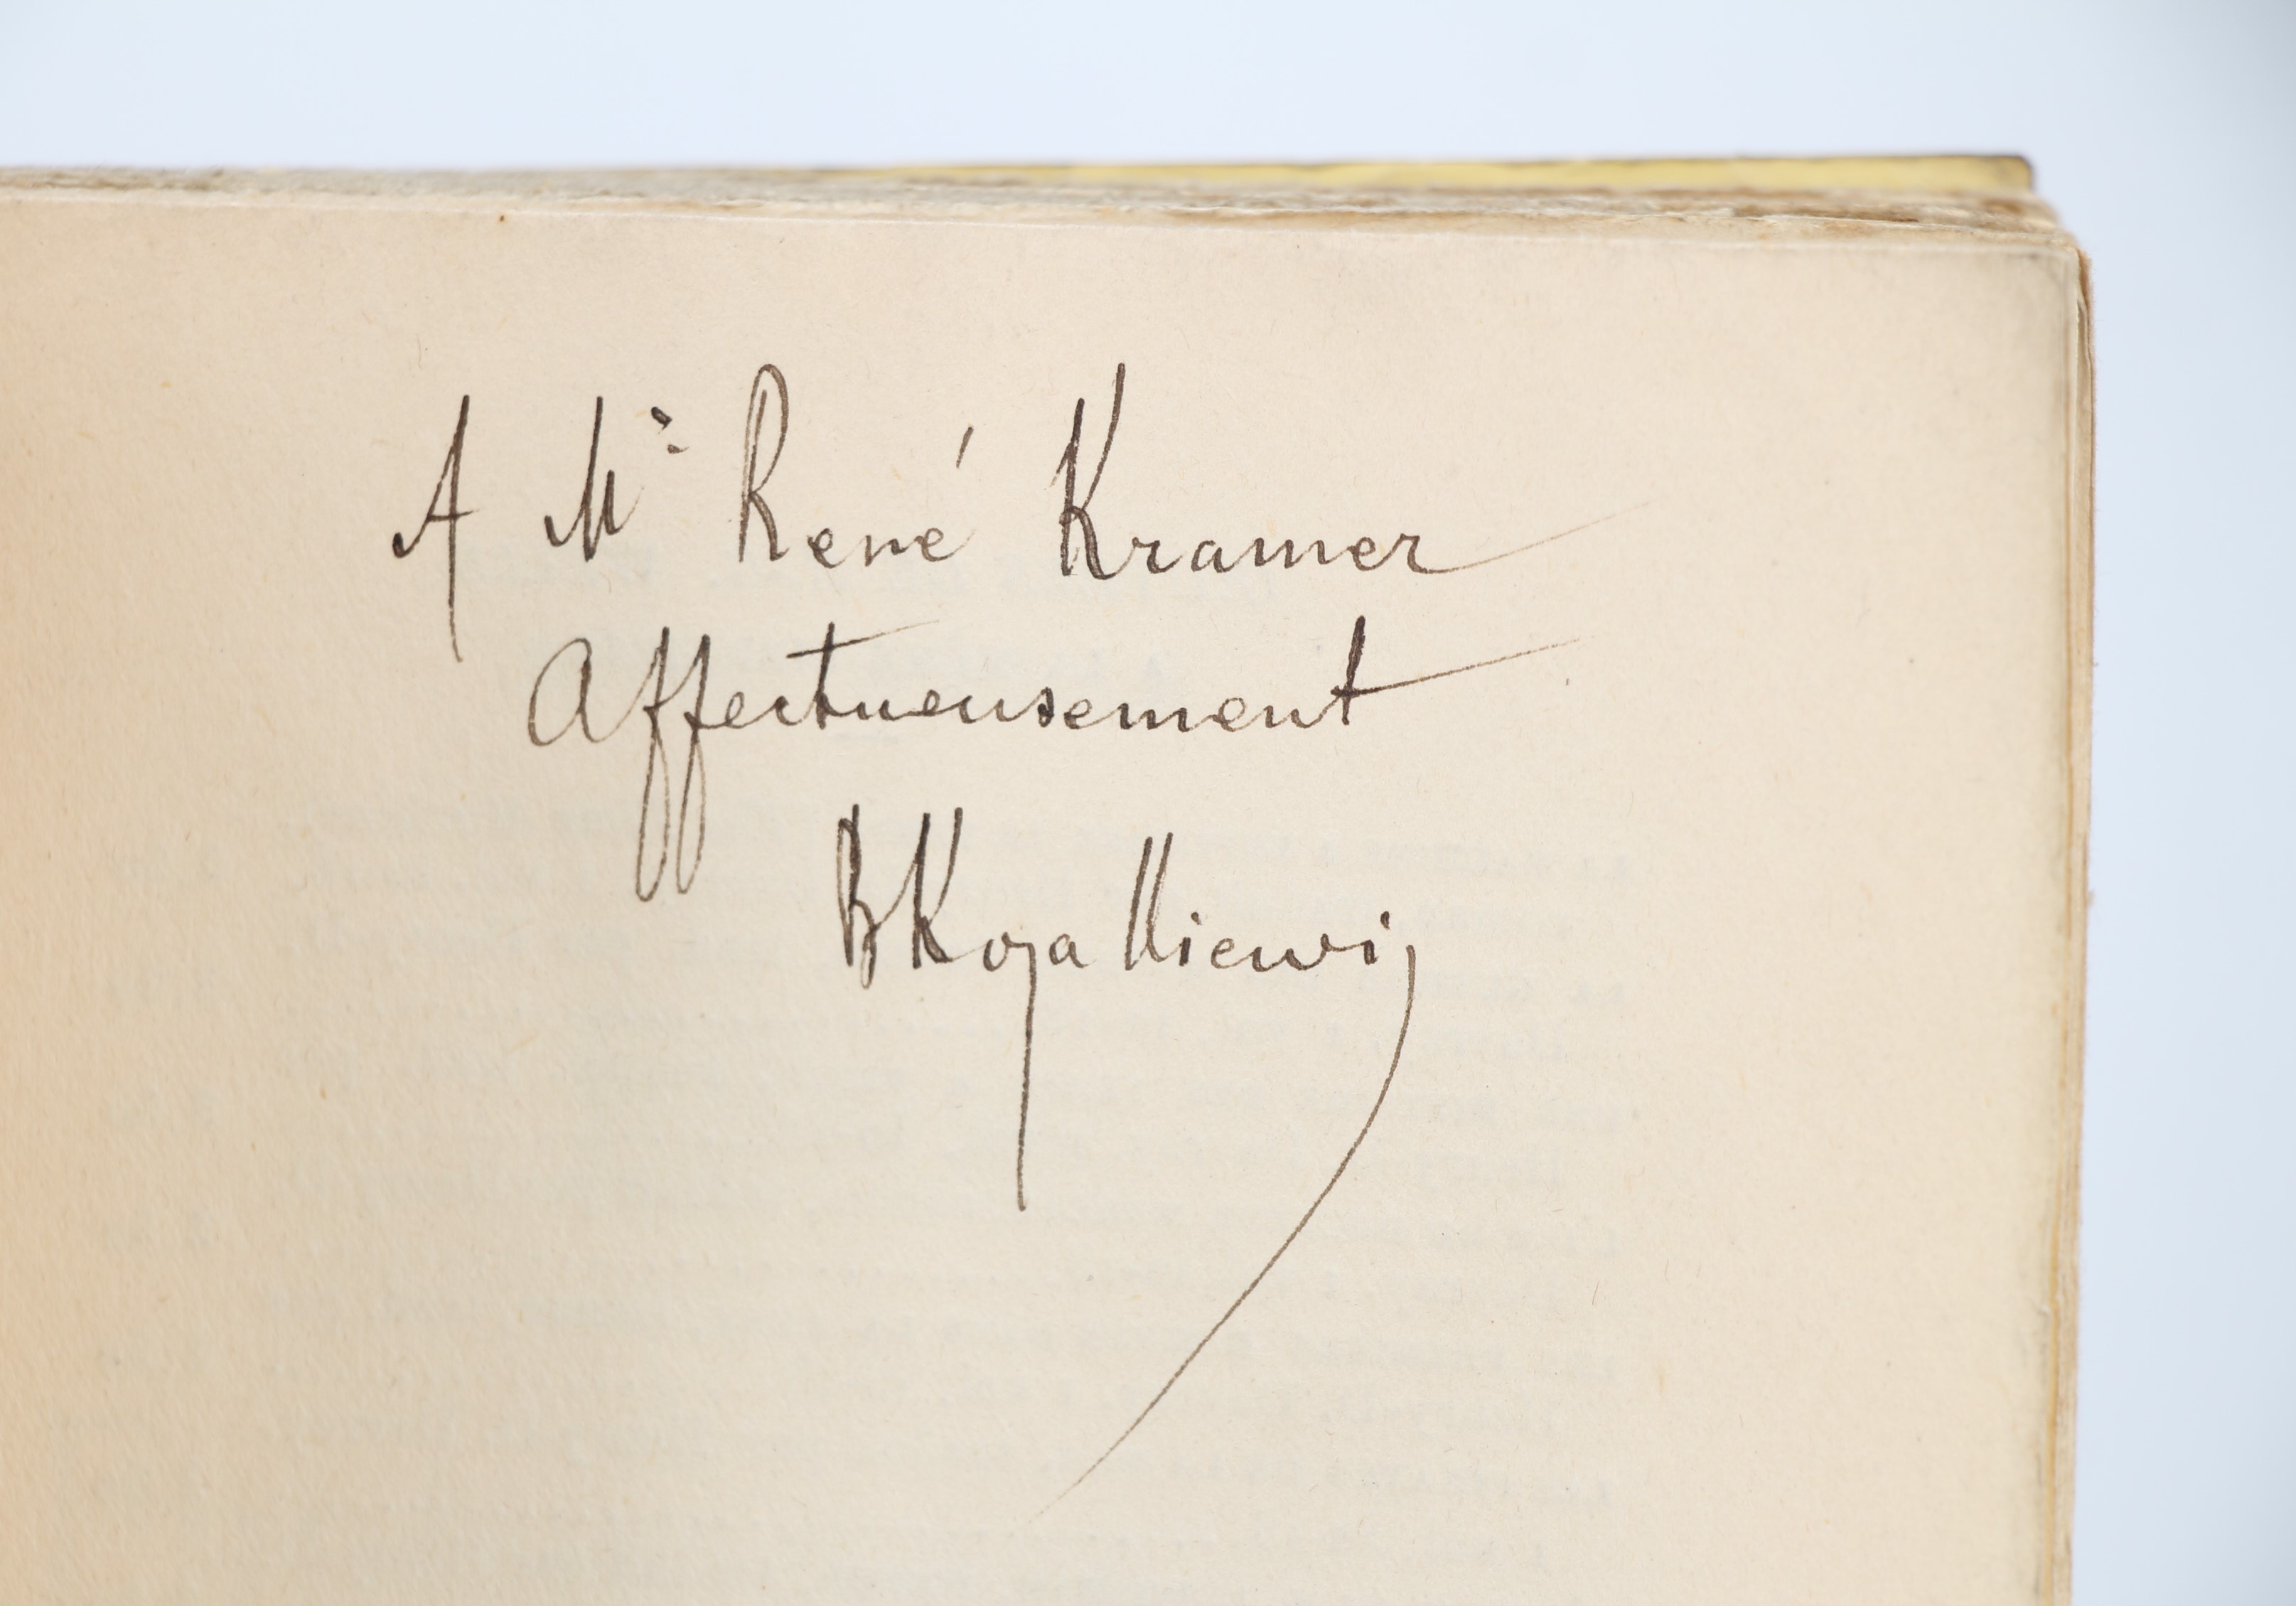 A Mr René Kramer
Affectueusement